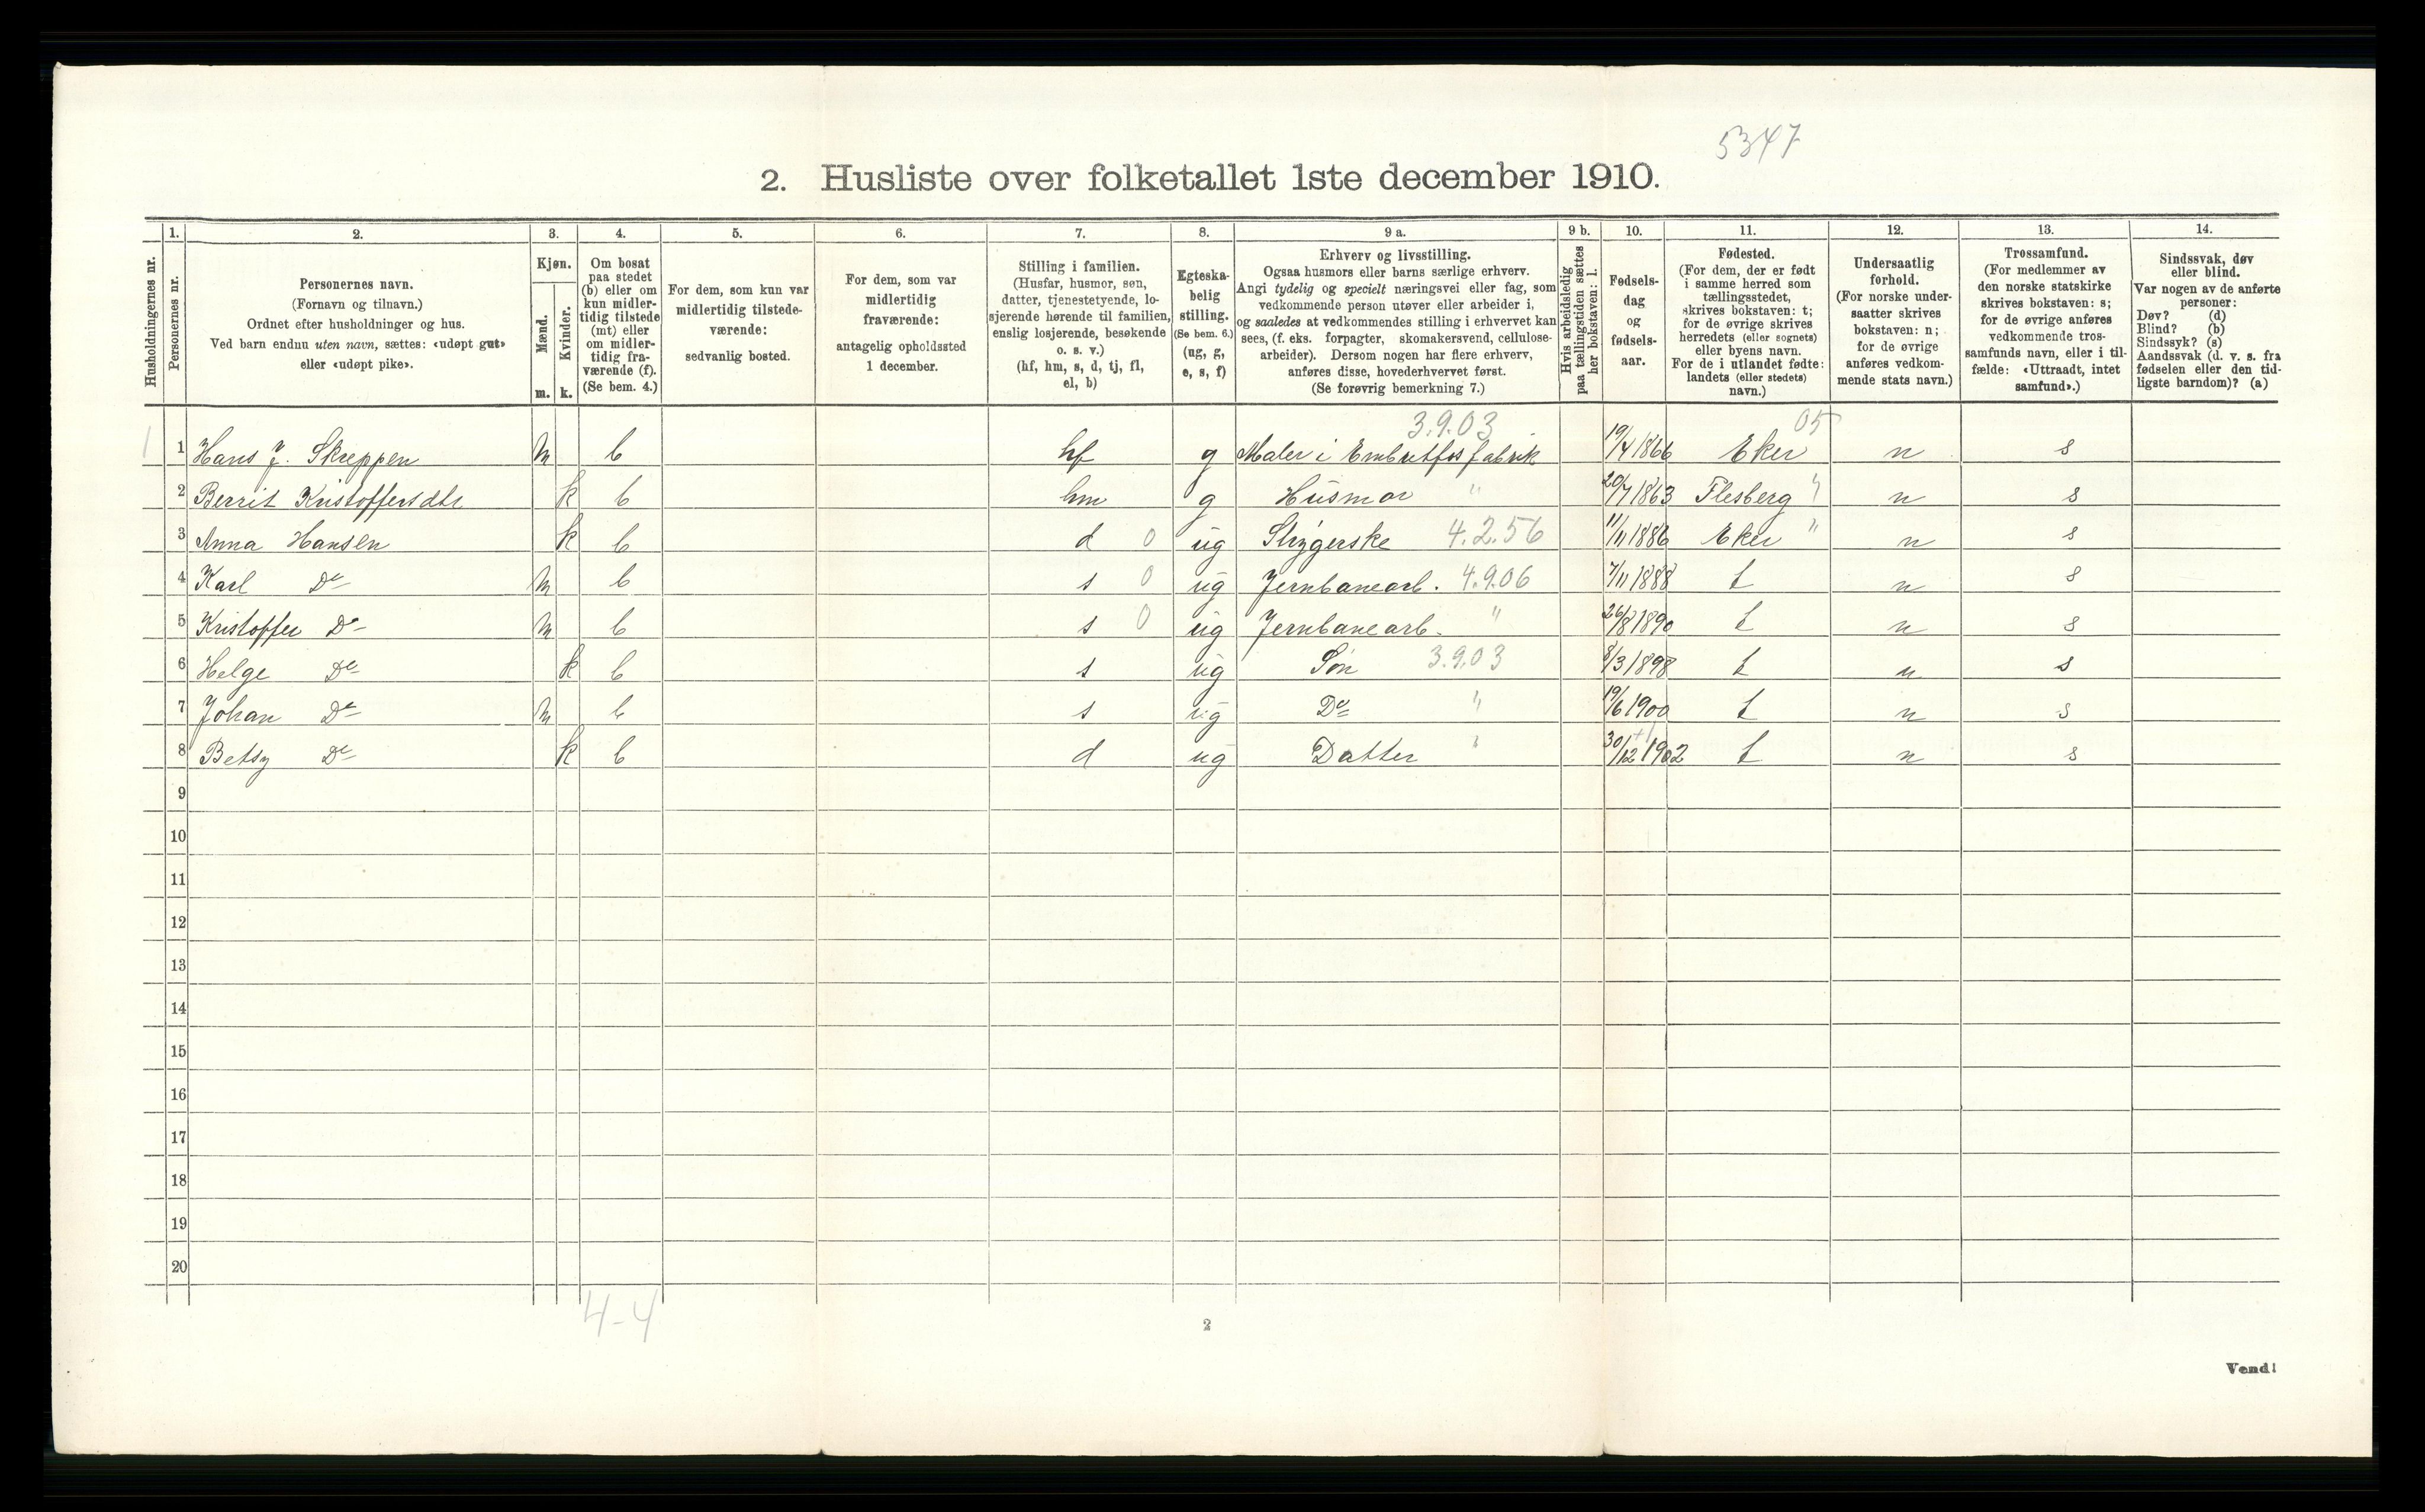 5347
2. Husliste over folketallet 1ste december 1910.
Husholdningernes nr.
1.
Personernes nr.
2.
Personernes navn.
(Fornavn og tilnavn.)
Ordnet efter husholdninger og hus.
Ved barn endnu uten navn, sættes: «udøpt gut»
eller «udøpt pike».
3.
Kjøn.
Mænd.
m.
Kvinder.
k.
4.
Om bosat
paa stedet
(b) eller om
kun midler-
tidig tilstede
(mt) eller
om midler-
tidig fra-
værende (f).
(Se bem. 4.)
5.
For dem, som kun var
midlertidig tilstede-
værende:
sedvanlig bosted.
6.
For dem, som var
midlertidig
fraværende:
antagelig opholdssted
1 december.
7.
Stilling i familien.
(Husfar, husmor, søn,
datter, tjenestetyende, lo-
sjerende hørende til familien,
enslig losjerende, besøkende
o. s. v.)
(hf, hm, s, d, tj, fl,
el, b)
8.
Egteska-
belig
stilling.
(Se bem. 6.)
(ug, g,
e, s, f)
9 a.
Erhverv og livsstilling.
Ogsaa husmors eller barns særlige erhverv.
Angi tydelig og specielt næringsvei eller fag, som
vedkommende person utøver eller arbeider i,
og saaledes at vedkommendes stilling i erhvervet kan
sees, (f. eks. forpagter, skomakersvend, cellulose-
arbeider). Dersom nogen har flere erhverv,
anføres disse, hovederhvervet først.
(Se forøvrig bemerkning 7.)
9 b.
Hvis arbeidsledig
paa tællingstiden sættes
her bokstaven: l.
10.
Fødsels-
dag
og
fødsels-
aar.
11.
Fødested.
(For dem, der er født
i samme herred som
tællingsstedet,
skrives bokstaven: t;
for de øvrige skrives
herredets (eller sognets)
eller byens navn.
For de i utlandet fødte:
landets (eller stedets)
navn.)
12.
Undersaatlig
forhold.
(For norske under-
saatter skrives
bokstaven: n;
for de øvrige
anføres vedkom-
mende stats navn.)
13.
Trossamfund.
(For medlemmer av
den norske statskirke
skrives bokstaven: s;
for de øvrige anføres
vedkommende tros-
samfunds navn, eller i til-
fælde: «Uttraadt, intet
samfund».)
14.
Sindssvak, døv
eller blind.
Var nogen av de anførte
personer:
Døv? (d)
Blind? (b)
Sindssyk? (s)
Aandssvak (d. v. s. fra
fødselen eller den tid-
ligste barndom)? (a)
3.9.03 05
1 1 Hans J. Skreppen m b hf g Maler i Embretfos fabrik 19/4 1866 Eker n s
2 Berrit Kristoffersdtr k b hm g Husmor " 20/7 1863 Flesberg n s
3 Anna Hansen k b d 0 ug Strygerske 4.2.56 11/11 1886 Eker " n s
4 Karl Do m b s 0 ug Jernbanearb. 4.9.06 7/11 1888 t n s
5 Kristoffer Do m b s 0 ug Jernbanearb. " 26/8 1890 t n s
6 Helge Do k b s ug Søn 3.9.03 8/3 1898 t n s
7 Johan Do m b s ug Do " 19/6 1900 t n s
8 Betsy Do k b d ug Datter " 30/12 1902 t n s
9
10
11
12
13
14
15
16
17
18
19
20
4-4
2
Vend!